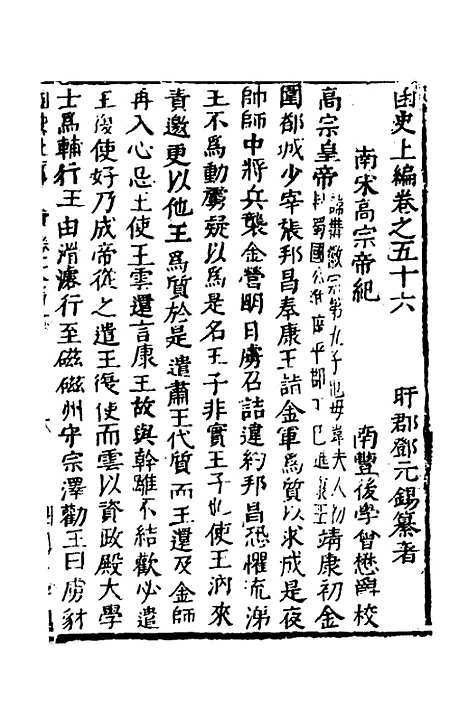 函史上編卷之五十六
盱郡鄧元錫纂著
南宋高宗帝紀
南豐後學曾懋爵校
高宗皇帝諱構徽宗第九子也母韋夫人初封蜀國公進廣平郡丁巳進康王靖康初金
圍都城少宰張邦昌奉康王詣金軍為質以求成是夜
帥師中將兵襲金營明日虜召詰違約邦昌恐懼流涕
王不為動虜疑以為是名王子非實王子也使王汭來
責邀更以他王為質於是遣肅王代質而王還及金師
再入心忌王使王雲還言康王故與斡離不結歡必遣
王復使好乃成帝從之遣王復使而雲以資政殿大學
士為輔行王由滑濬行至磁磁州守宗澤勸王曰虜豺